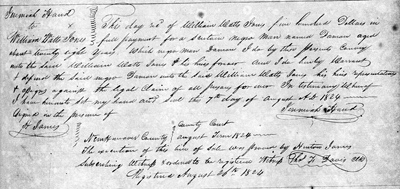 Jeremiah Hand
to
William Watts Jones
This day recd of William Watts Jones five hundred Dollars in
full payment for a certain negro man named Damon aged
about twenty eight years Which negro man Damon I do by these presents Convey
unto the said William Watts Jones & his heirs forever And I do hereby Warrant
& defend the said negro Damon unto the said William Watts Jones his heirs representatives
& assigns against the legal Claims of all persons for ever In testimony Whereof
I have hereunto set my hand and seal the 7th day of August A.D. 1824
Signed in the presence of
Jeremiah Hand
H James
New Hanover County County Court
August Term 1824
The execution of this bill of Sale was proven by Hinton James
Subscribing Witness & ordered to be registered Witness Thos. F. Davis Clk
Registered August 26th 1824